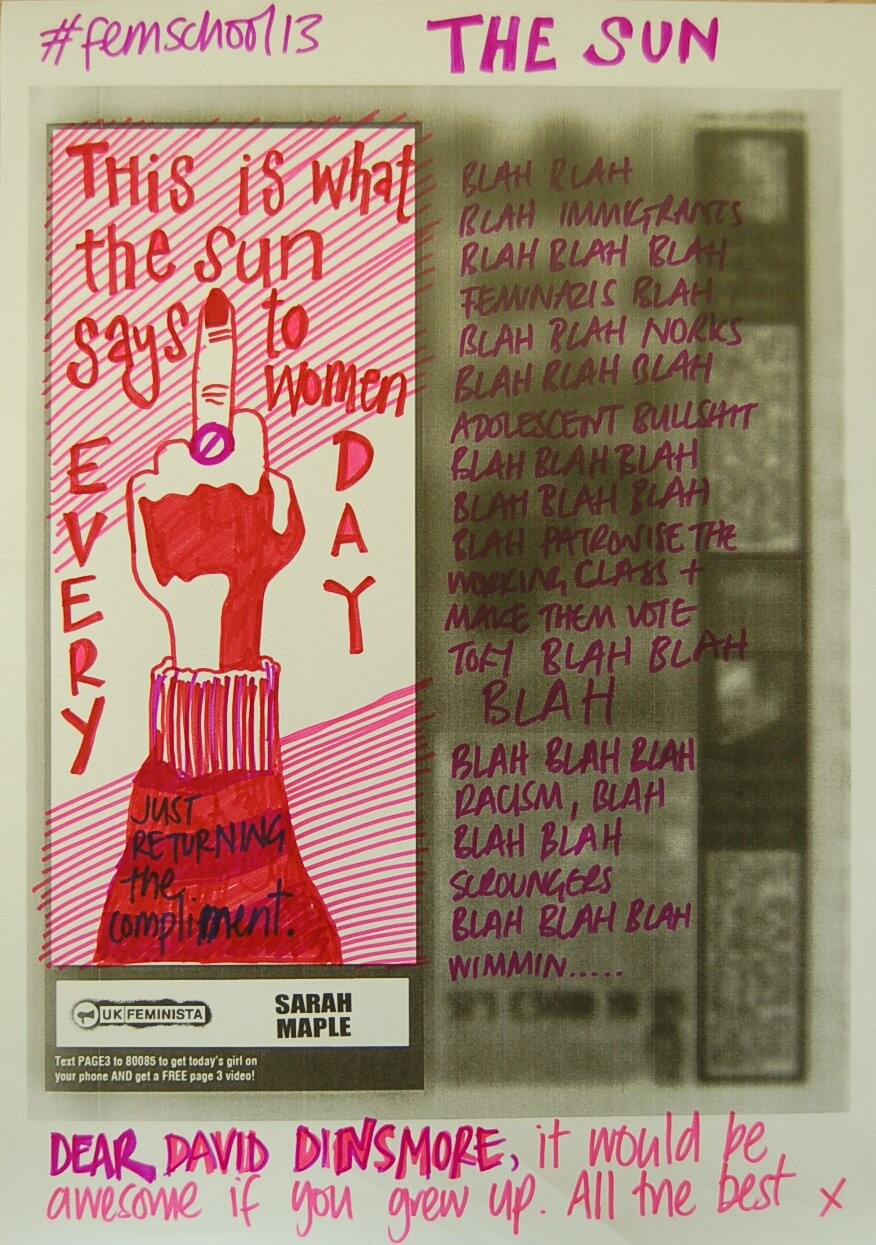 #femschool13
THE SUN
THIS is what
the sun
says to
women
EVERY
DAY
JUST
RETURNING
the
compliment.
UK FEMINISTA
SARAH
MAPLE
Text PAGE3 to 80085 to get today's girl on
your phone AND get a FREE page 3 video!
BLAH BLAH
BLAH IMMIGRANTS
BLAH BLAH BLAH
FEMINAZIS BLAH
BLAH BLAH NORKS
BLAH BLAH BLAH
ADOLESCENT BULLSHIT
BLAH BLAH BLAH
BLAH BLAH BLAH
BLAH PATRONISE THE
WORKING CLASS +
MAKE THEM VOTE
TORY BLAH BLAH
BLAH
BLAH BLAH BLAH
RACISM, BLAH
BLAH BLAH
SCROUNGERS
BLAH BLAH BLAH
WIMMIN.....
DEAR DAVID DINSMORE, it would be
awesome if you grew up. All the best x